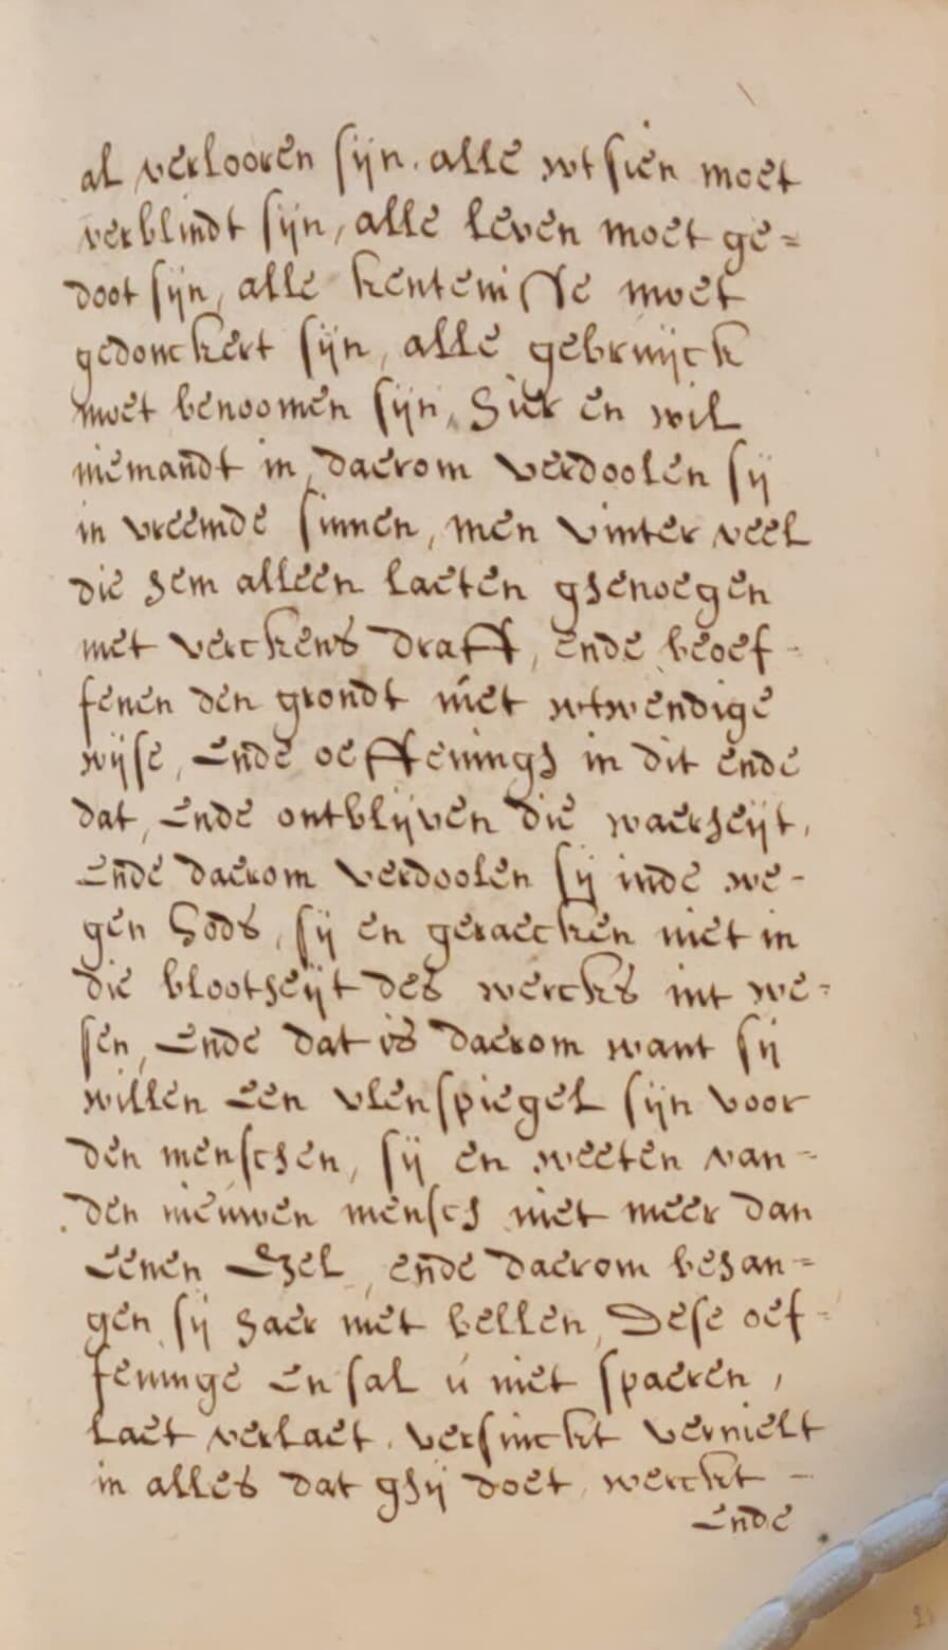 al verlooren sijn. alle wtsien moet
verblindt sijn, alle leven moet ge=
doot sijn, alle kentenisse moet
gedonckert sijn, alle gebruijck
moet benoomen sijn, hier en wil
niemandt in, daerom verdoolen sij
in vreemde sinnen, men vinter veel
die hem alleen laeten ghenoegen
met verckens draff, ende beoef-
fenen den grondt met wtwendige
wijse, ende oeffenings in dit ende
dat, ende ontblijven die waerheijt,
ende daerom verdoolen sij inde we-
gen Gods, sij en geraecken niet in
die blootheijt des wercks int we=
sen, ende dat is daerom want sij
willen een vlenspiegel sijn voor
den menschen, sij en weeten van=
den nieuwen mensch niet meer dan
eenen Ezel, ende daerom behan=
gen sij haer met bellen, Dese oef=
feninge en sal u niet spaeren,
laet verlaet. versinckt vernielt
in alles dat ghij doet, werckt -
ende